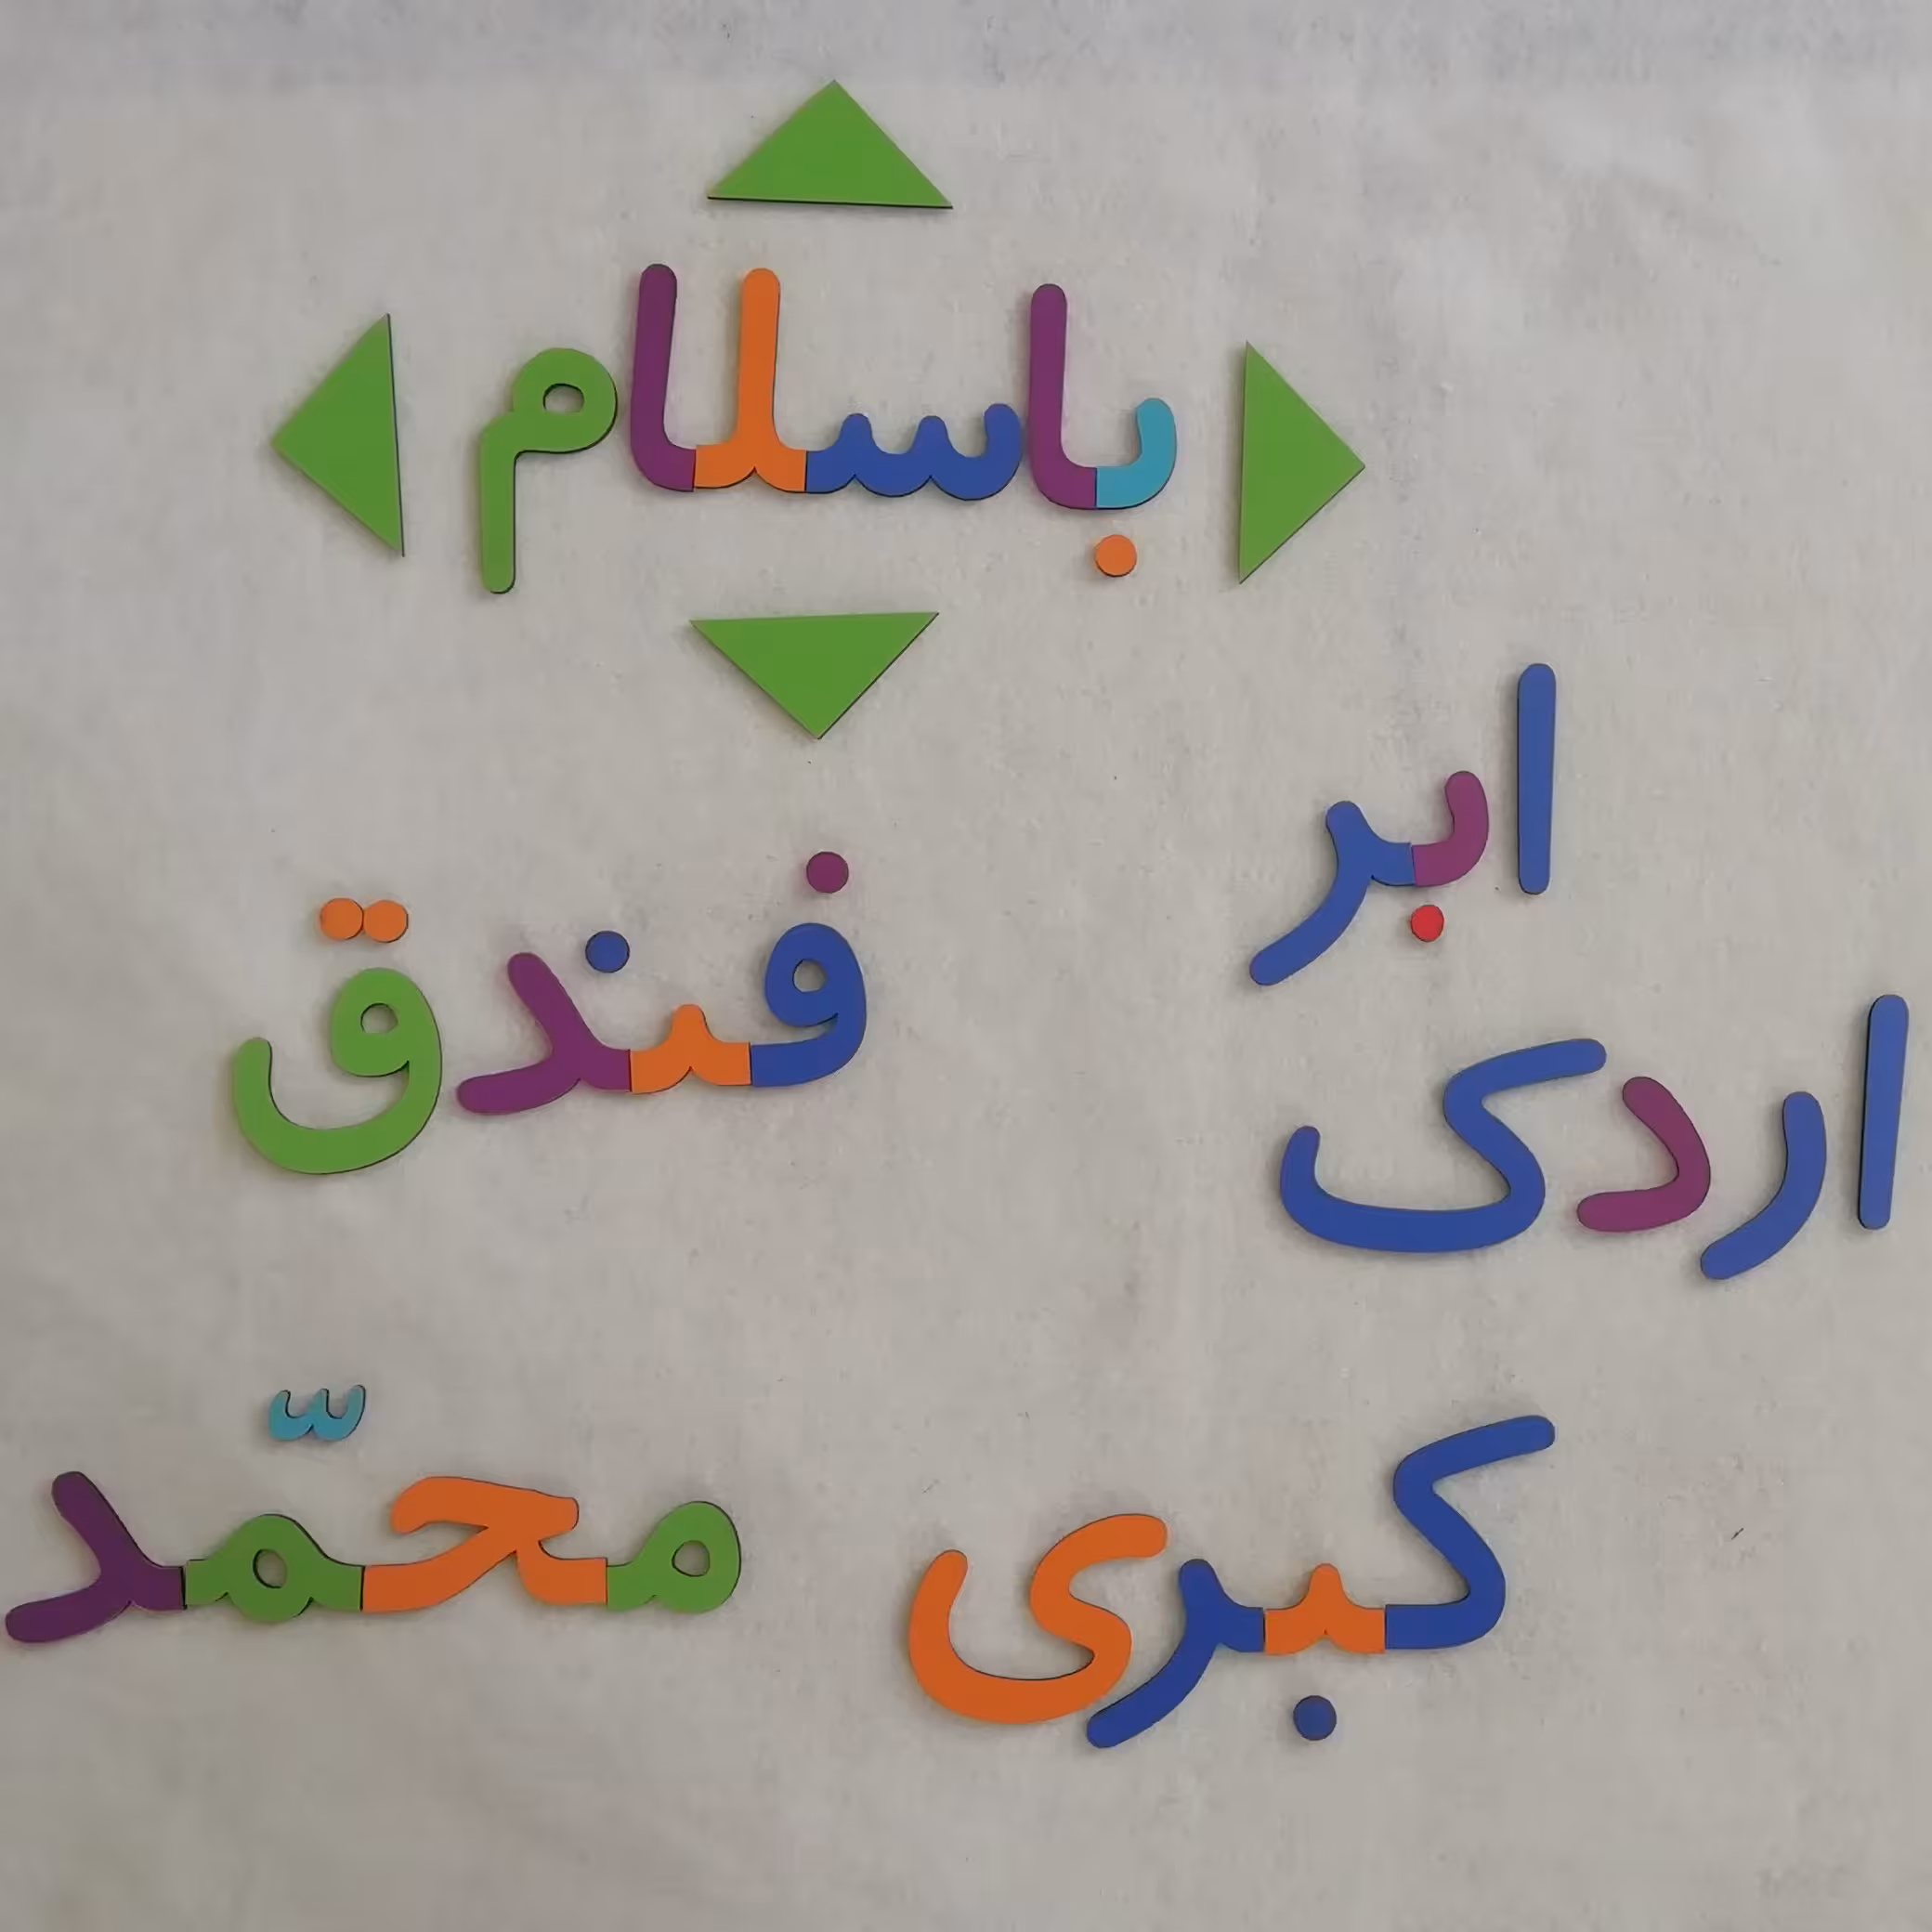 باسلام
ابر
فندق
اردک
کبری
محمّد